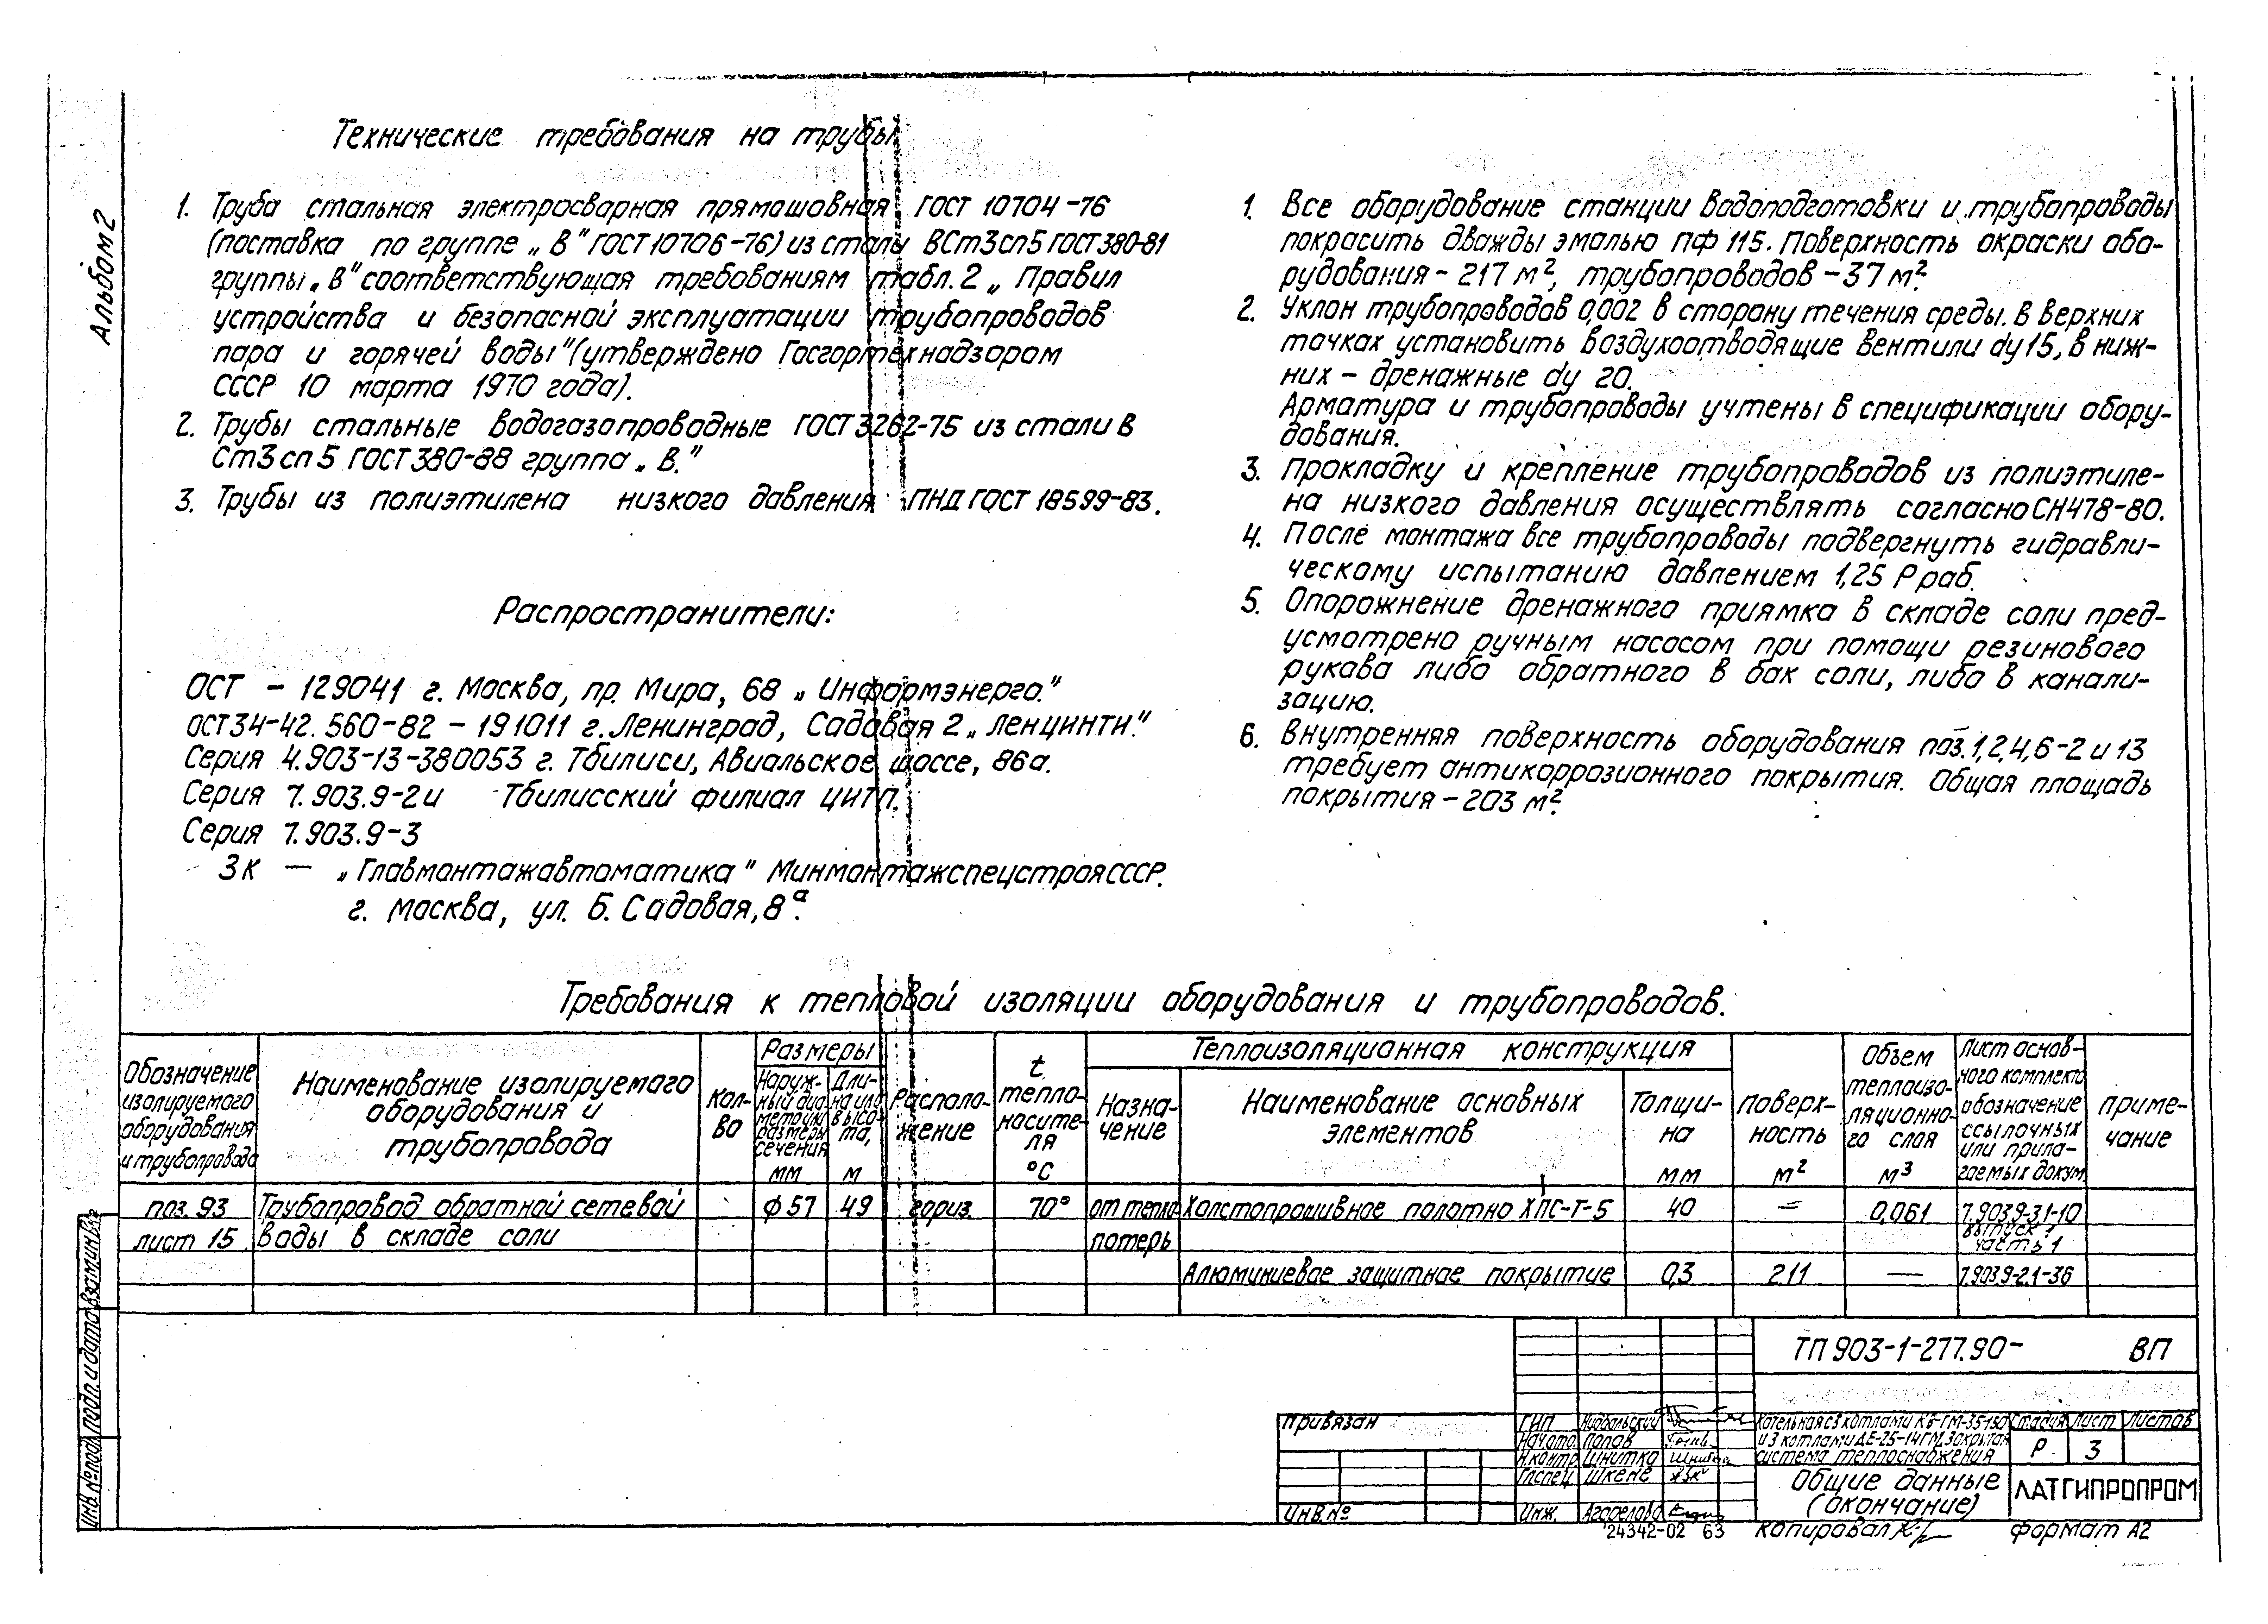 Альбом 2
Технические требования на трубы
1. Труба стальная электросварная прямошовная ГОСТ 10704-76
(поставка по группе „В" ГОСТ 10706-76) из стали ВСт3сп5 ГОСТ 380-81
группы „В" соответствующая требованиям табл. 2 „Правил
устройства и безопасной эксплуатации трубопроводов
пара и горячей воды" (утверждено Госгортехнадзором
СССР 10 марта 1970 года).
2. Трубы стальные водогазопроводные ГОСТ 3262-75 из стали В
Ст3сп5 ГОСТ 380-88 группа „В."
3. Трубы из полиэтилена низкого давления ПНД ГОСТ 18599-83.
Распространители:
ОСТ - 129041 г. Москва, пр. Мира, 68 „Информэнерго."
ОСТ 34-42.560-82 - 191011 г. Ленинград, Садовая 2 „ЛЕНЦИНТИ."
Серия 4.903-13-380053 г. Тбилиси, Авиальское шоссе, 86а.
Серия 7.903.9-2 и Тбилисский филиал ЦИТП.
Серия 7.903.9-3
ЗК — „Главмонтажавтоматика" Минмонтажспецстроя СССР.
г. Москва, ул. Б. Садовая, 8а.
1. Все оборудование станции водоподготовки и трубопроводы
покрасить дважды эмалью ПФ 115. Поверхность окраски обо-
рудования - 217 м², трубопроводов - 37 м².
2. Уклон трубопроводов 0,002 в сторону течения среды. В верхних
точках установить воздухоотводящие вентили dу 15, в ниж-
них - дренажные dу 20.
Арматура и трубопроводы учтены в спецификации обору-
дования.
3. Прокладку и крепление трубопроводов из полиэтиле-
на низкого давления осуществлять согласно СН 478-80.
4. После монтажа все трубопроводы подвергнуть гидравли-
ческому испытанию давлением 1,25 Р раб.
5. Опорожнение дренажного приямка в складе соли пред-
усмотрено ручным насосом при помощи резинового
рукава либо обратного в бак соли, либо в канали-
зацию.
6. Внутренняя поверхность оборудования поз. 1,2,4,6-2 и 13
требует антикоррозионного покрытия. Общая площадь
покрытия - 203 м².
Требования к тепловой изоляции оборудования и трубопроводов.
Обозначение изолируемого оборудования и трубопровода
Наименование изолируемого оборудования и трубопровода
Кол-во
Размеры
Наруж-ный диаметр или размеры сечения мм
Дли-на или высо-та, м
Располо-жение
t тепло-носите-ля °С
Теплоизоляционная конструкция
Назна-чение
Наименование основных элементов
Толщи-на мм
Поверх-ность м²
Объем теплоизо-ляционно-го слоя м³
Лист основ-ного комплекта обозначение ссылочных или прила-гаемых докум.
Приме-чание
поз. 93 Трубопровод обратной сетевой ф 57 49 гориз. 70° от тепло Холстопрошивное полотно ХПС-Т-5 40 — 0,061 7.903.9-3.1-10
лист 15 воды в складе соли потерь выпуск 1
часть 1
Алюминиевое защитное покрытие 0,3 211 — 7.903.9-2.1-36
ТП 903-1-277.90- ВП
Привязан
Инв. №
ГИП
Нач.отд. Попов
Н.контр. Шнитка
Гл.спец. Шкене
Инж.
Котельная с 3 котлами КВ-ГМ-35-150
и 3 котлами ДЕ-25-14ГМ. Закрытая
система теплоснабжения
Стадия Лист Листов
Р 3
Общие данные
(окончание)
ЛАТГИПРОПРОМ
24342-02 63
Копировал
Формат А2
Инв. № подл. Подп. и дата Взам. инв. №